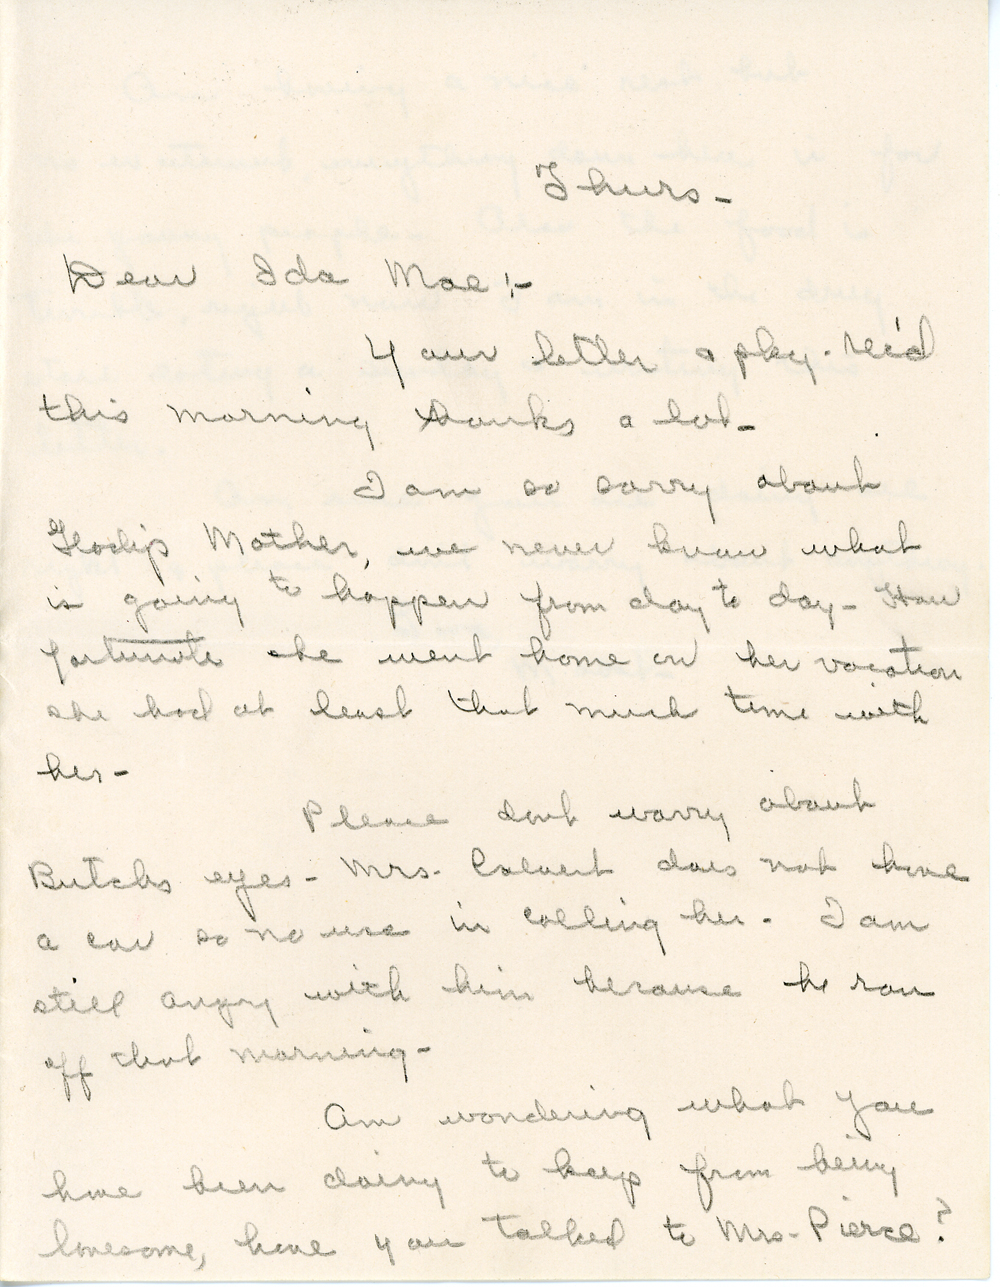 Thurs-
Dear Ida Mae:-
Your letter & pkg. rec'd
this morning thanks a lot-
I am so sorry about
Mother, we never know what
is going to happen from day to day- How
fortunate she went home on her vacation
she had at least that much time with
her-
Please dont worry about
Butchs eyes- Mrs. Calvert does not have
a car so no use in calling her. I am
still angry with him because he ran
off that morning-
Am wondering what you
have been doing to keep from being
lonesome, have you talked to Mrs. Pierce?